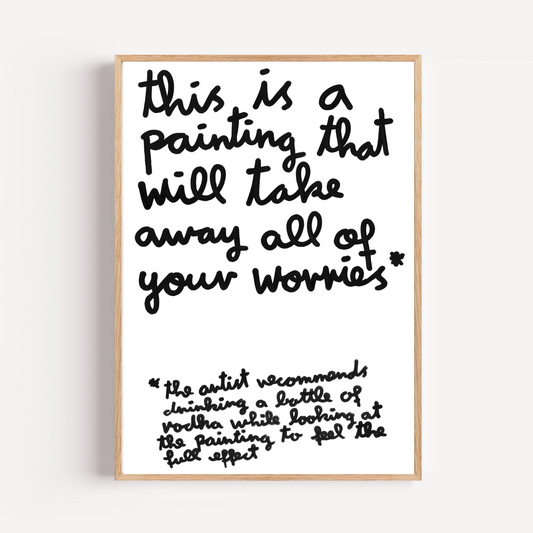 this is a
painting that
will take
away all of
your worries*
* the artist recommends
drinking a bottle of
vodka while looking at
the painting to feel the
full effect